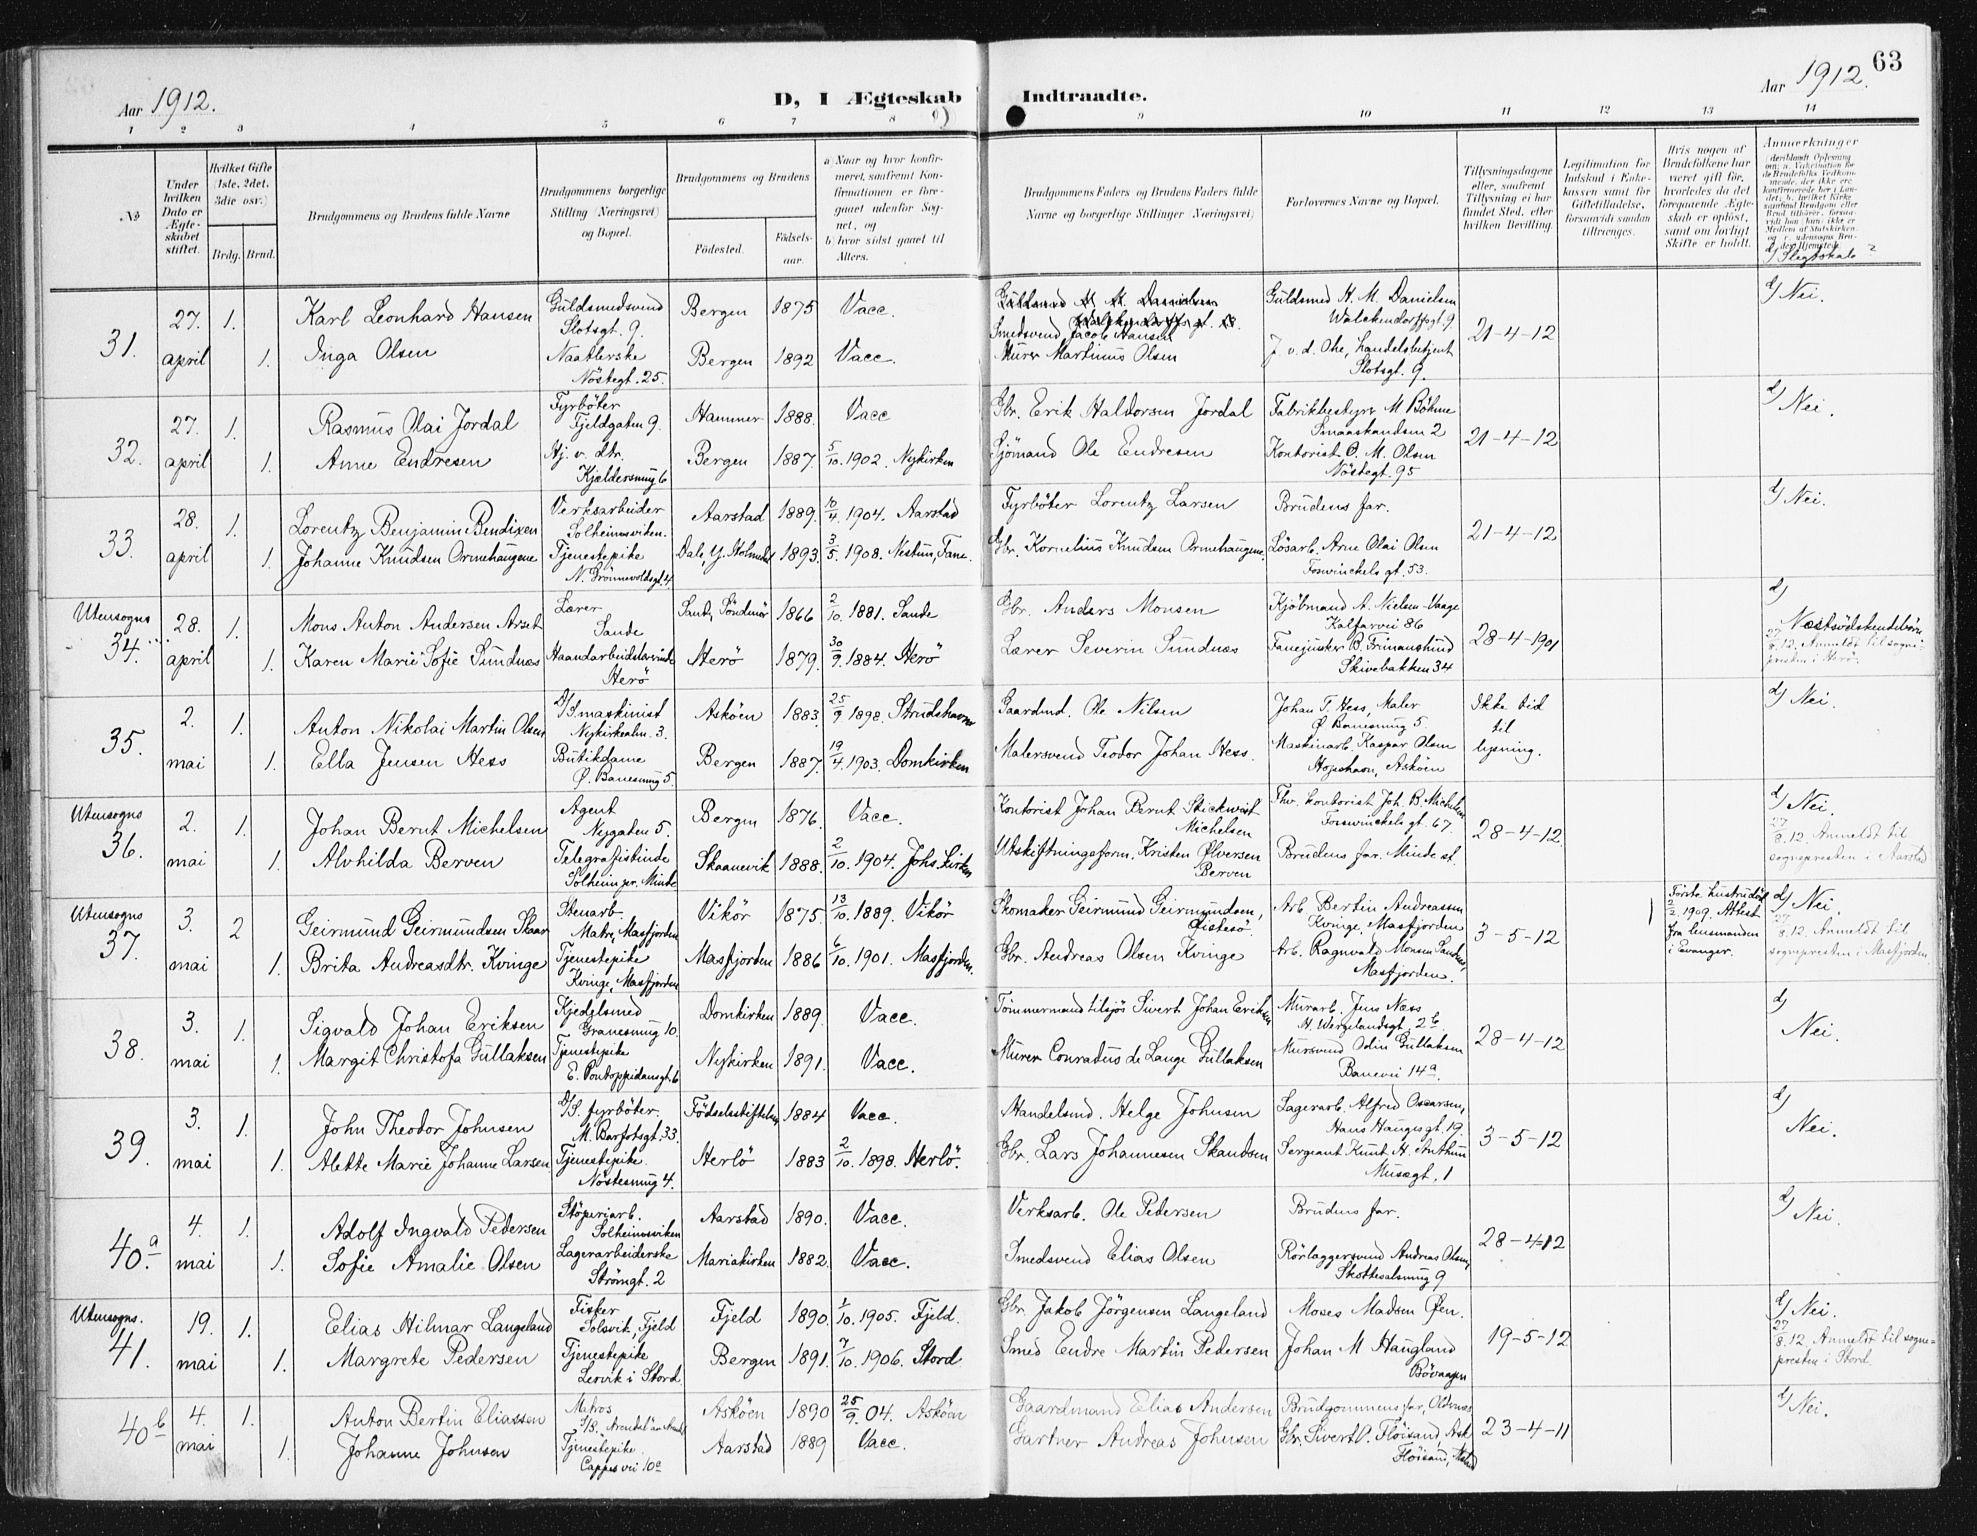 63
Aar 1912.
D, I Ægteskab Indtraadte.
Aar 1912.
1 2 3 4 5 6 7 8 9 10 11 12 13 14
No
Under hvilken Dato er Ægteskabet stiftet.
Hvilket Gifte (1ste, 2det, 3die osv.)
Brdg. Brud.
Brudgommens og Brudens fulde Navne
Brudgommens borgerlige Stilling (Næringsvei) og Bopæl.
Brudgommens og Brudens
Fødested.
Fødselsaar.
a) Naar og hvor konfirmeret, saafremt Konfirmationen er foregaaet udenfor Sognet, og
b) hvor sidst gaaet til Alters.
Brudgommens Faders og Brudens Faders fulde Navne og borgerlige Stillinger (Næringsvei)
Forlovernes Navne og Bopæl.
Tillysningsdagene eller, saafremt Tillysning ei har fundet Sted, efter hvilken Bevilling.
Legitimation for Indskud i Enkekassen samt for Giftetilladelse, forsaavidt saadan tiltrænges.
Hvis nogen af Brudefolkene har været gift før, hvorledes da det foregaaende Ægteskab er opløst, samt om lovligt Skifte er holdt.
Anmerkninger
d/ Slegtskab?
31. 27. april 1. Karl Leonhard Hansen Guldsmedsvend Slotsgt. 9. Bergen 1875 Vacc. Smedsvend Jacob Hansen Guldsmed H. M. Danielsen Walckendorffsgt. 9 21-4-12 d/ Nei.
1. Inga Olsen Naatlerske Nöstegt. 25. Bergen 1892 Vacc. Murer Martinus Olsen J. v. d. Ohe, handelsbetjent Slotsgt. 9.
32. 27. april 1. Rasmus Olai Jordal Fyrböter Fjeldgaten 9. Hammer 1888. Vacc Gbr. Erik Haldorsen Jordal Fabrikbestyrer M. Böhme Smaastrandsm 2 21-4-12 d/ Nei.
1. Anne Endresen Hj. v. dtr. Kjeldersmug 6 Bergen 1887. 5/10. 1902. Nykirken Sjömand Ole Endresen Kontorist O. M. Olsen Nöstegt. 95
33. 28. april 1. Lorentz Benjamin Bendixen Verksarbeider Solheimsviken. Aarstad 1889. 10/4. 1904. Aarstad Fyrböter Lorentz Larsen Brudens far. 21-4-12 d/ Nei.
1. Johanne Knudsen Ormehaugene Tjenestepike N. Brönnevoldsgt. 4 1893. 3/5. 1908. Nestun, Fane. Gbr. Kornelius Knudsen Ormehaugene. Lösarb. Arne Olai Olsen Foswinckels gt. 53.
Utensogns
34. 28. april 1. Mons Anton Andersen Arset Lærer Sande Sande, Söndmör 1866 2/10. 1881. Sande Gbr. Anders Monsen Kjöbmand A. Nielsen-Vaage Kalfarvei 86 28-4-1901 d/ Næstsödskendebörn
1. Karen Marie Sofie Sundnæs Haandarbeidslærerinde Herö Herö 1879. 30/9. 1884. Herö Lærer Severin Sundnæs Fanejunker B. Frimanslund Skivebakken 34 27/8.12. Anmeldt til sognepresten i Herö.
35. 2. mai 1. Anton Nikolai Martin Olsen D/S. maskinist Nykirkealm. 3. Asköen 1883. 25/9. 1898. Strudshavn Gaardmd. Ole Nilsen Johan T. Hess, Maler Ø. Banesmug 5 Ikke tid til lysning. d/ Nei.
1. Ella Jensen Hess Butikdame Ø. Banesmug 5 Bergen 1887. 19/4. 1903. Domkirken Malersvend Teodor Johan Hess. Maskinarb. Kaspar Olsen Hopshavn, Asköen
Utensogns
36. 2. mai 1. Johan Bernt Michelsen Agent Nygaten 5. Bergen 1876. Vacc. Kontorist Johan Bernt Stickwist Michelsen Fhv. kontorist Joh. B. Michelsen Foswinckels gt. 67. 28-4-12 d/ Nei.
1. Alvhilda Berven Telegrafistinde Solheim pr. Minde Skaanevik 1888. 2/10. 1904. Johs. kirken Utskiftningsform. Kristen Ølversen Berven Brudens far. Minde st. 27/8.12. Anmeldt til sognepresten i Aarstad
Utensogns
37. 3. mai 2 Geirmund Geirmundsen Skaar Stenarb. Matre, Masfjorden Vikör 1875 13/10. 1889. Vikör Skomaker Geirmund Geirmundsen, Øistesö. Arb. Bertin Andreassen Kvinge, Masfjorden 3-5-12 Første hustru död 2/2. 1909. Attest fra lensmanden i Evanger. d/ Nei.
1. Brita Andreasdtr. Kvinge Tjenestepike Kvinge, Masfjorden Masfjorden 1886 6/10. 1901. Masfjorden. Gbr. Andreas Olsen Kvinge Arb. Ragnvald Monsen Sandnes, Masfjorden. 27/8.12. Anmeldt til sognepresten i Masfjorden.
38. 3. mai 1. Sigvald Johan Eriksen Kjedelsmed Granesmug 10. Domkirken 1889. Vacc. Tömmermand tilsjös Sivert Johan Eriksen Murarb. Jens Næss H. Wergelandsgt. 2b. 28-4-12 d/ Nei.
1. Margit Christofa Gullaksen Tjenestepike E. Pontoppidansgt. 6 Nykirken 1891. Vacc. Murer Conradus de Lange Gullaksen Mursvend Odin Gullaksen Banevei 14a.
39. 3. mai 1. John Theodor Johnsen D/S. fyrböter. M. Barfotsgt. 33. Födselsstiftelsen 1884 Vacc. Handelsmd. Helge Johnsen Lagerarb. Alfred Oscarsen, Hans Haugesgt. 19 3-5-12 d/ Nei.
1. Alette Marie Johanne Larsen Tjenestepike. Nöstesmug 4. Herlö 1883 2/10. 1898. Herlö. Gbr. Lars Johannesen Skandsen Sergeant Knut H. Anthun Museegt. 1
40a 4. mai 1. Adolf Ingvald Pedersen Stöperiarb. Solheimsviken Aarstad 1890. Vacc. Verksarb. Ole Pedersen Brudens far. 28-4-12 d/ Nei.
1. Sofie Amalie Olsen Lagerarbeiderske Strömgt. 2 Mariakirken 1882. Vacc. Smedsvend Elias Olsen Rörlæggersvend Andreas Olsen, Skottesalsmug 9
Utensogns.
41. 19. mai 1. Elias Hilmar Langeland Fisker Solsvik, Fjeld Fjeld 1890. 1/10. 1905. Fjeld. Gbr. Jakob Jörgensen Langeland Moses Madsen Øen. 19-5-12 d/ Nei.
1. Margrete Pedersen Tjenestepike Lervik i Stord. Bergen 1891. 7/10. 1906. Stord Smed Endre Martin Pedersen Johan M Haugland Bövaagen 27/8.12. Anmeldt til sognepresten i Stord.
40b 4. mai 1. Anton Bertin Eliassen Matros Asköen 1890 25/9. 04. Asköen Gaardmand Elias Andersen Brudgommens far, 23-4-11 d/ Nei.
1. Johanne Johnsen Tjenestepike. Cappes vei 10a Aarstad 1889 Vacc. Gartner Andreas Johnsen Gbr. Sivert P. Flöisand, Ask Flöisand,